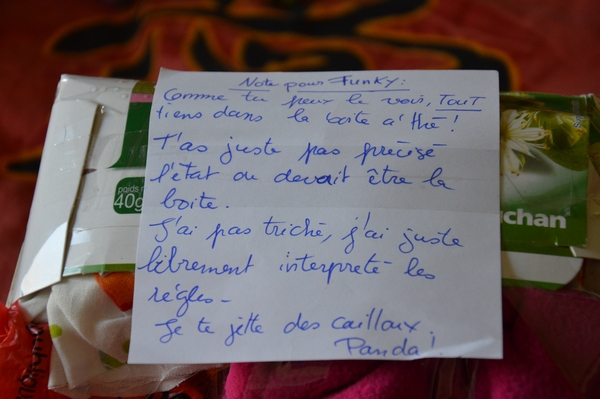 Note pour Funky :
Comme tu peux le voir, TOUT
tiens dans la boite à thé !
T'as juste pas précisé
l'état ou devait être la
boite.
J'ai pas triché, j'ai juste
librement interpreté les
règles -
Je te jette des cailloux
Panda !
poids n
40g
uchan